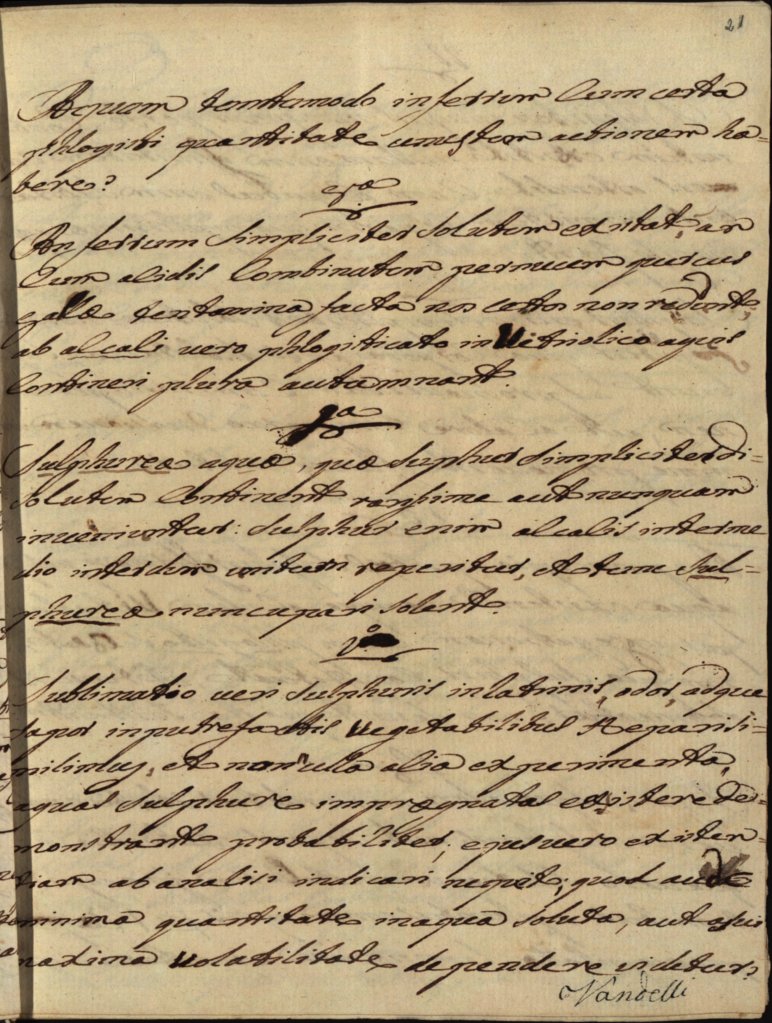 21
Aquam tantumodo in ferrum Cum certa
phlogisti quantitate unustam actionem ha-
bere?
An ferrum Simpliciter Solutum existat, an
Cum acidis Combinatum per nucum quercus
gallæ tentamina facta nos certos non redunt,
ab alcali vero phlogisticato in Vitriolico aquis
Contineri plura autumnant.
9a
Sulphureæ aquæ, quæ Suphur Simpliciter di-
Solutum Continent rarissime aut nunquam
inveniuntur: Sulphur enim alcalis interme
dio interdum unitum reperitur, et tunc Sul-
phureæ nuncupari Solent.
Sublimatio veri Sulphuris in latrinis, odor, adque
Sapor in putrefactis Vegetabilibus Repari si-
milimus, et nonulla alia experimenta,
aquas Sulphure imprægnatas existere De-
monstrant probabiliter; ejus vero existen-
tiam ab analisi indicari nequit; quod aut
minima quantitate in aqua Soluta, aut ejus
maxima Volatilitate dependere videtur.
Vandelli